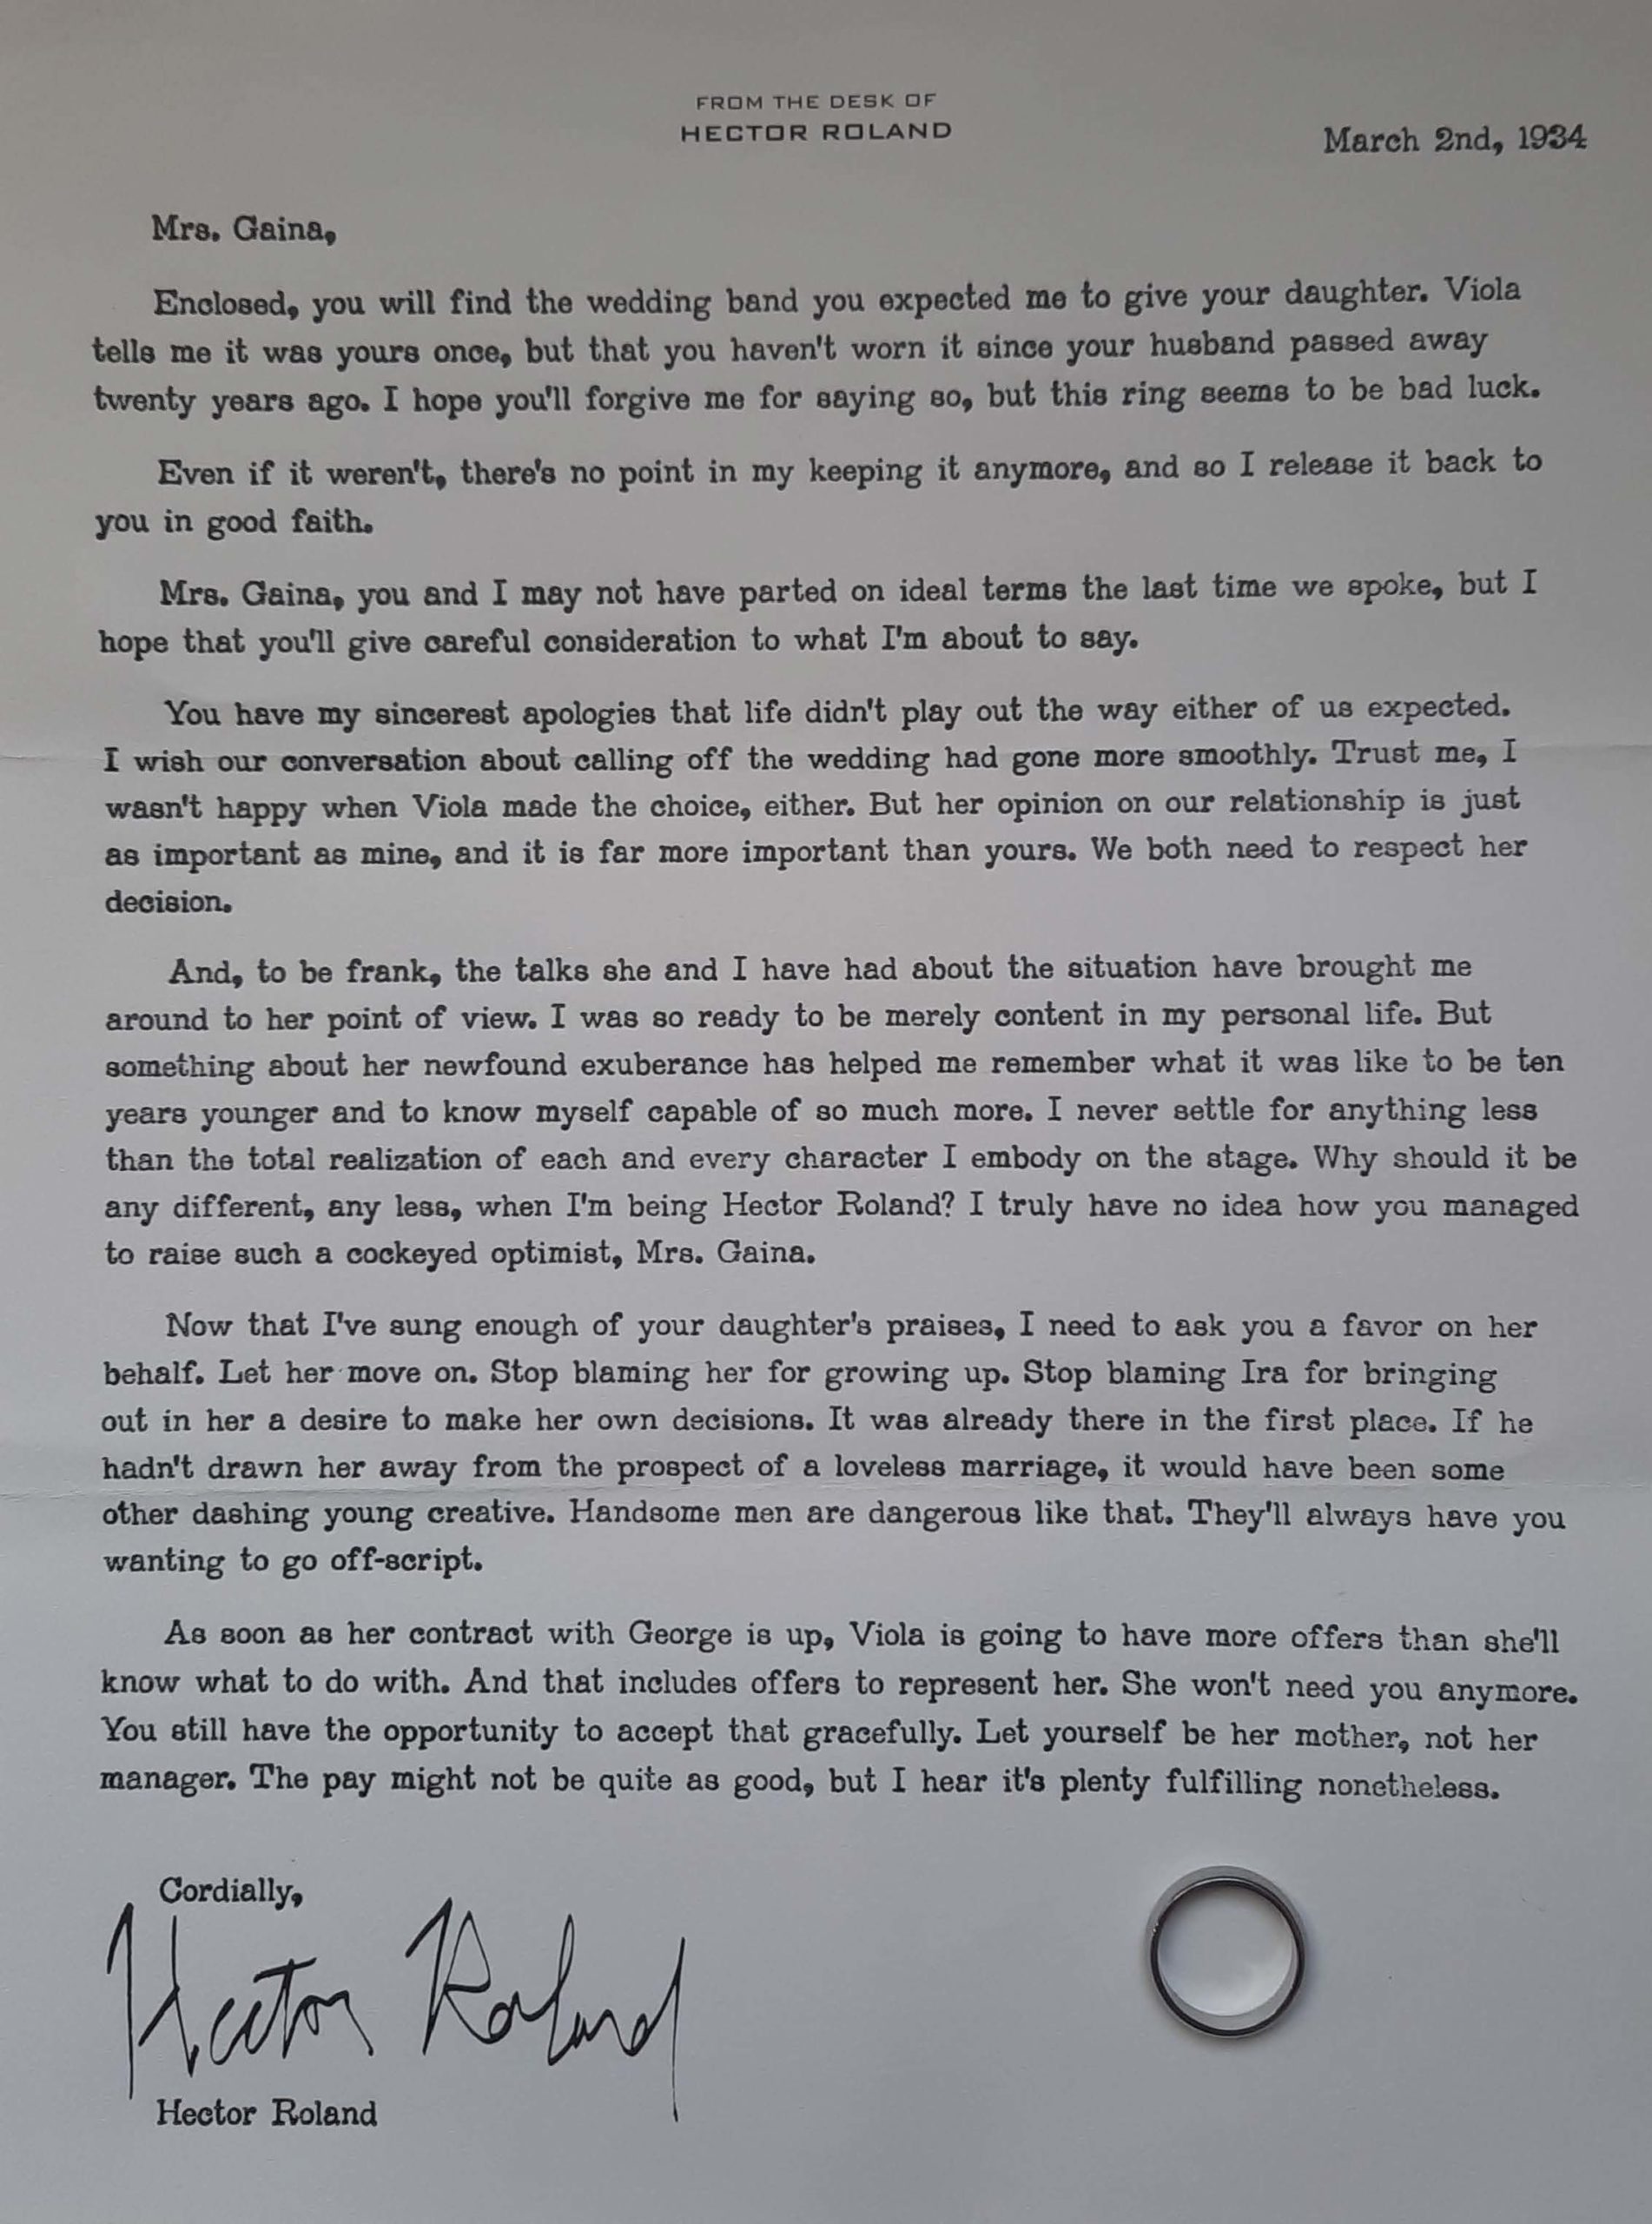 FROM THE DESK OF
HECTOR ROLAND
March 2nd, 1934
Mrs. Gaina,
Enclosed, you will find the wedding band you expected me to give your daughter. Viola
tells me it was yours once, but that you haven't worn it since your husband passed away
twenty years ago. I hope you'll forgive me for saying so, but this ring seems to be bad luck.
Even if it weren't, there's no point in my keeping it anymore, and so I release it back to
you in good faith.
Mrs. Gaina, you and I may not have parted on ideal terms the last time we spoke, but I
hope that you'll give careful consideration to what I'm about to say.
You have my sincerest apologies that life didn't play out the way either of us expected.
I wish our conversation about calling off the wedding had gone more smoothly. Trust me, I
wasn't happy when Viola made the choice, either. But her opinion on our relationship is just
as important as mine, and it is far more important than yours. We both need to respect her
decision.
And, to be frank, the talks she and I have had about the situation have brought me
around to her point of view. I was so ready to be merely content in my personal life. But
something about her newfound exuberance has helped me remember what it was like to be ten
years younger and to know myself capable of so much more. I never settle for anything less
than the total realization of each and every character I embody on the stage. Why should it be
any different, any less, when I'm being Hector Roland? I truly have no idea how you managed
to raise such a cockeyed optimist, Mrs. Gaina.
Now that I've sung enough of your daughter's praises, I need to ask you a favor on her
behalf. Let her move on. Stop blaming her for growing up. Stop blaming Ira for bringing
out in her a desire to make her own decisions. It was already there in the first place. If he
hadn't drawn her away from the prospect of a loveless marriage, it would have been some
other dashing young creative. Handsome men are dangerous like that. They'll always have you
wanting to go off-script.
As soon as her contract with George is up, Viola is going to have more offers than she'll
know what to do with. And that includes offers to represent her. She won't need you anymore.
You still have the opportunity to accept that gracefully. Let yourself be her mother, not her
manager. The pay might not be quite as good, but I hear it's plenty fulfilling nonetheless.
Cordially,
Hector Roland
Hector Roland